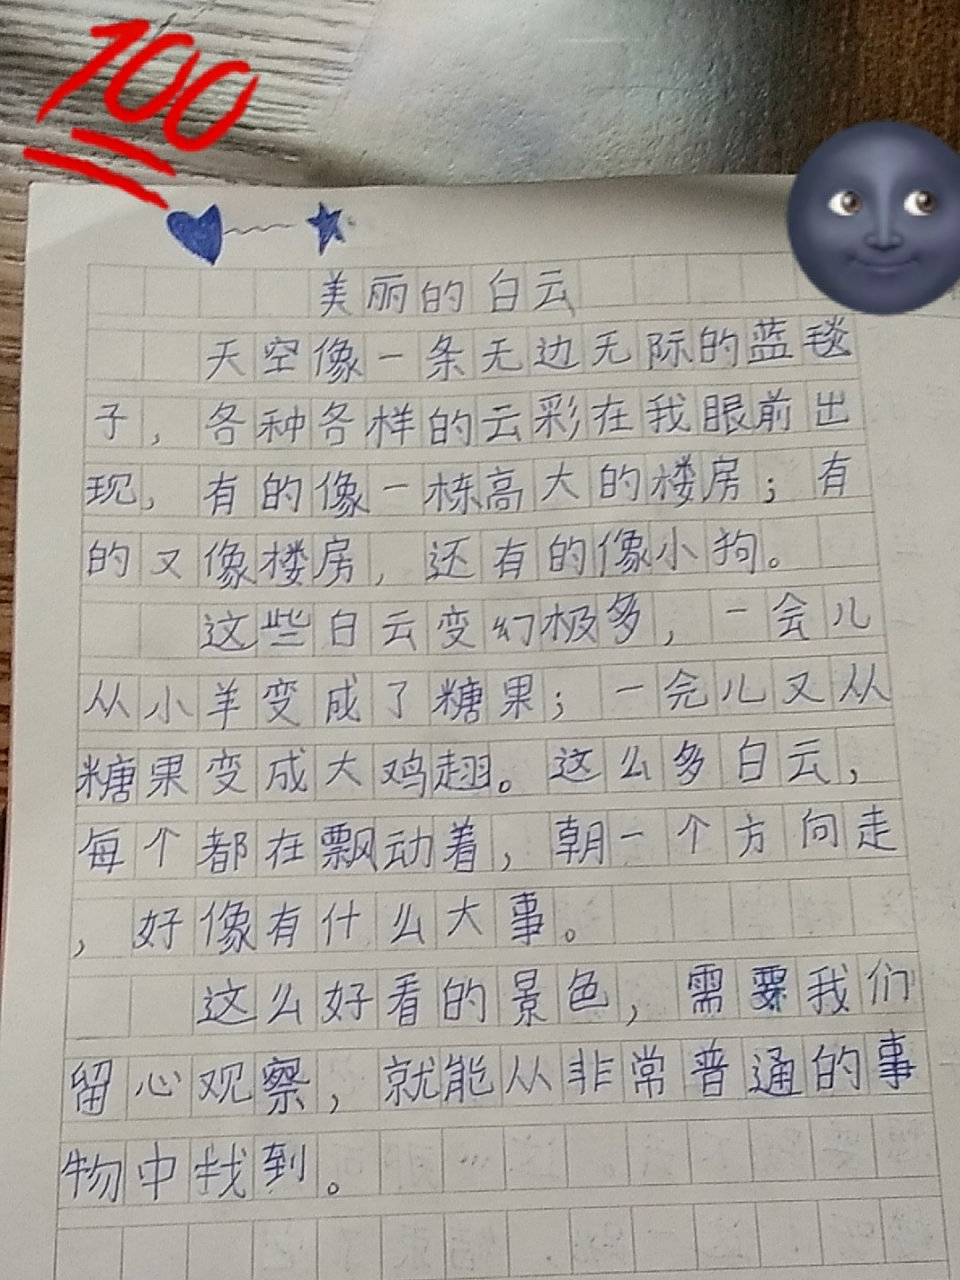 100
美丽的白云
天空像一条无边无际的蓝毯
子，各种各样的云彩在我眼前出
现，有的像一栋高大的楼房；有
的又像楼房，还有的像小狗。
这些白云变幻极多，一会儿
从小羊变成了糖果；一会儿又从
糖果变成大鸡翅。这么多白云，
每个都在飘动着，朝一个方向走
，好像有什么大事。
这么好看的景色，需要我们
留心观察，就能从非常普通的事
物中找到。